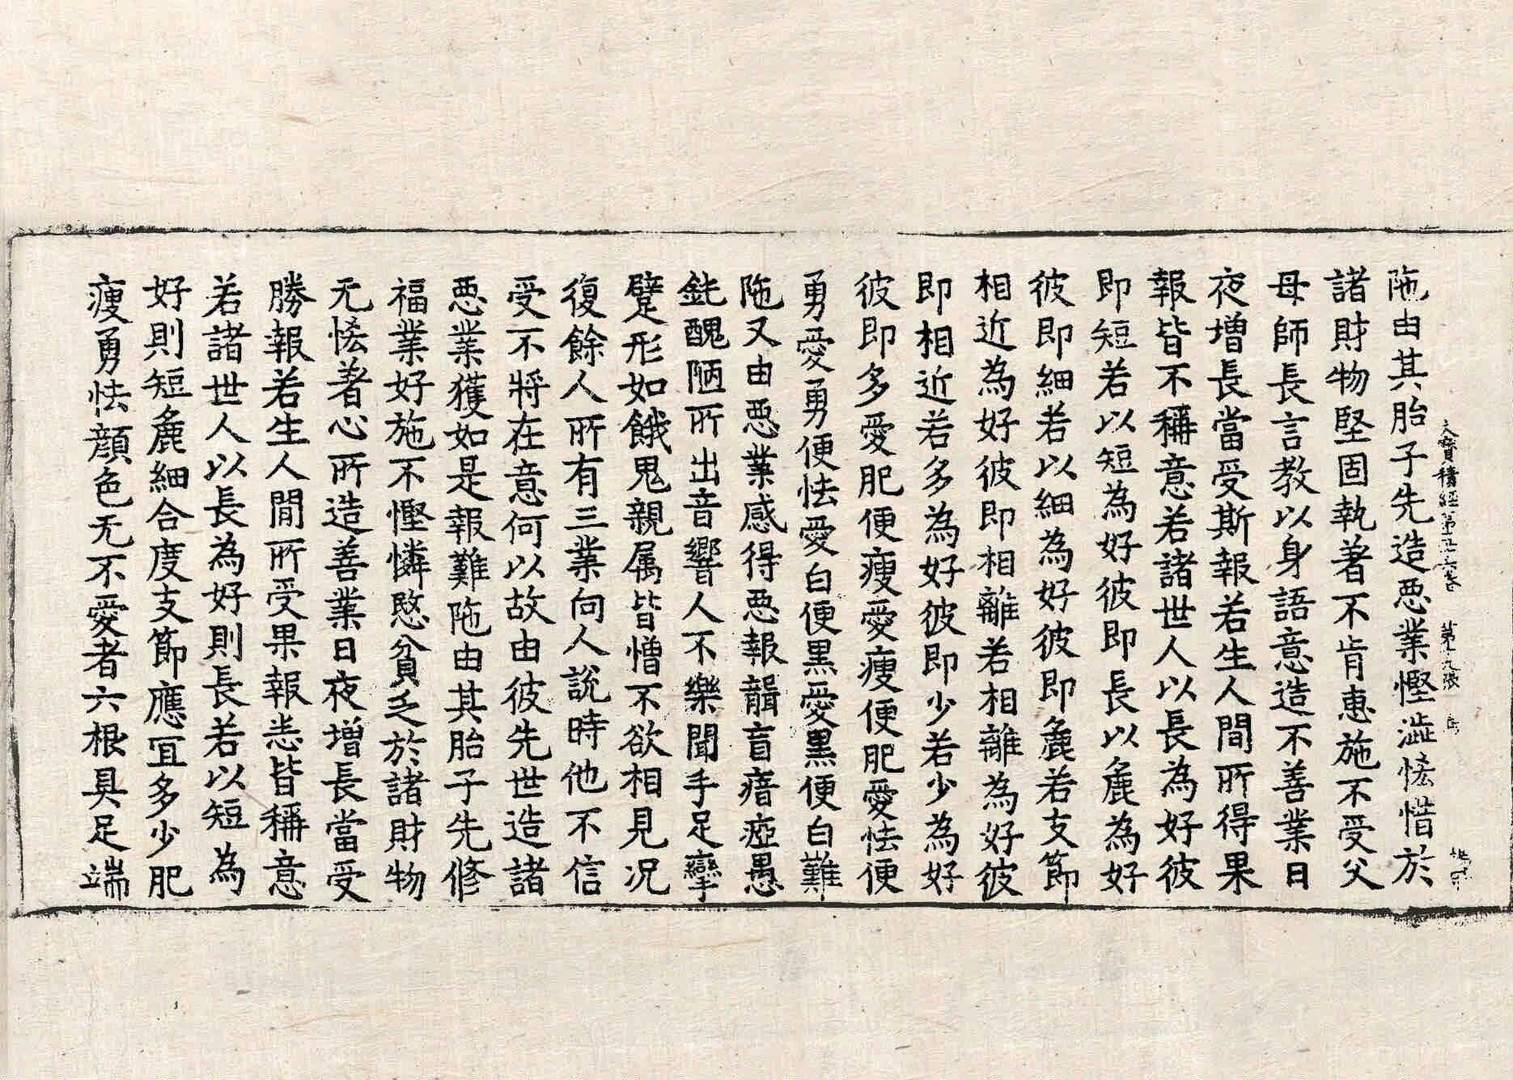 大寶積經第五十六卷 第十九張 鳥
陁由其胎子先造惡業慳澁悋惜於
諸財物堅固執著不肯惠施不受父
母師長言教以身語意造不善業日
夜增長當受斯報若生人間所得果
報皆不稱意若諸世人以長為好彼
即短若以短為好彼即長以麁為好
彼即細若以細為好彼即麁若支節
相近為好彼即相離若相離為好彼
即相近若多為好彼即少若少為好
彼即多愛肥便瘦愛瘦便肥愛怯便
勇愛勇便怯愛白便黑愛黑便白難
陁又由惡業感得惡報聾盲瘖瘂愚
鈍醜陋所出音響人不樂聞手足攣
躄形如餓鬼親属皆憎不欲相見况
復餘人所有三業向人説時他不信
受不將在意何以故由彼先世造諸
惡業獲如是報難陁由其胎子先修
福業好施不慳憐愍貧乏於諸財物
无悋著心所造善業日夜增長當受
勝報若生人間所受果報悉皆稱意
若諸世人以長為好則長若以短為
好則短麁細合度支節應冝多少肥
瘦勇怯顔色无不愛者六根具足端